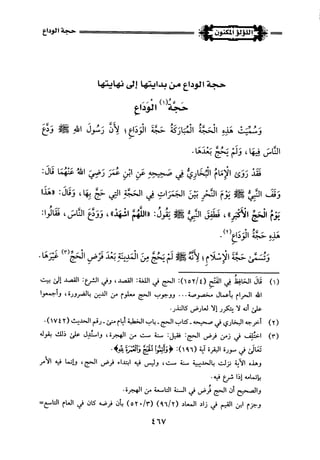 اللؤلؤ المكنون
حجة الوداع
حجة الوداع من بدايتها إلى نهايتها
حَجَّةُ(١) الوَدَاعِ
وَسُمِّيَتْ هَذِهِ الحَجَّةُ المُبَارَكَةُ حَجَّةَ الوَدَاعِ؛ لِأَنَّ رَسُولَ اللهِ ﷺ وَدَّعَ
النَّاسَ فِيهَا، وَلَمْ يَحُجَّ بَعْدَهَا.
فَقَدْ رَوَى الإِمَامُ البُخَارِيُّ فِي صَحِيحِهِ عَنِ ابْنِ عُمَرَ رَضِيَ اللهُ عَنْهُمَا قَالَ:
وَقَفَ النَّبِيُّ ﷺ يَوْمَ النَّحْرِ بَيْنَ الجَمَرَاتِ فِي الحَجَّةِ التِي حَجَّ بِهَا، وَقَالَ: «هَذَا
يَوْمُ الحَجِّ الأَكْبَرِ»، فَطَفِقَ النَّبِيُّ ﷺ يَقُولُ: «اللَّهُمَّ اشْهَدْ»، وَوَدَّعَ النَّاسَ، فَقَالُوا:
هَذِهِ حَجَّةُ الوَدَاعِ(٢).
وَتُسَمَّى حَجَّةَ الإِسْلَامِ، لِأَنَّهُ ﷺ لَمْ يَحُجَّ مِنَ المَدِينَةِ بَعْدَ فَرْضِ الحَجِّ(٣) غَيْرَهَا.
(١) قَالَ الحَافِظُ في الفَتْحِ (١٥٢/٤): الحج في اللغة: القصد، وفي الشرع: القصد إلى بيت
الله الحرام بأعمال مخصوصة... ووجوب الحج معلوم من الدين بالضرورة، وأجمعوا
على أنه لا يتكرَّر إلا لعارض كالنذر.
(٢) أخرجه البخاري في صحيحه ـ كتاب الحج ـ باب الخطبة أيام منى ـ رقم الحديث (١٧٤٢).
(٣) اختُلِف في زمن فرض الحج: فقيل: سنة ست من الهجرة، واستُدِل على ذلك بقوله
تعالى في سورة البقرة آية (١٩٦): ﴿وَأَتِمُّوا الْحَجَّ وَالْعُمْرَةَ لِلَّهِ﴾.
وهذه الآية نزلت بالحديبية سنة ست، وليس فيه ابتداء فرض الحج، وإنما فيه الأمر
بإتمامه إذا شرع فيه.
والصحيح أن الحج فُرض في السنة التاسعة من الهجرة.
وجزم ابن القيم في زاد المعاد (٩٦/٢) (٥٢٠/٣) بأن فرضه كان في العام التاسع=
٤٦٧